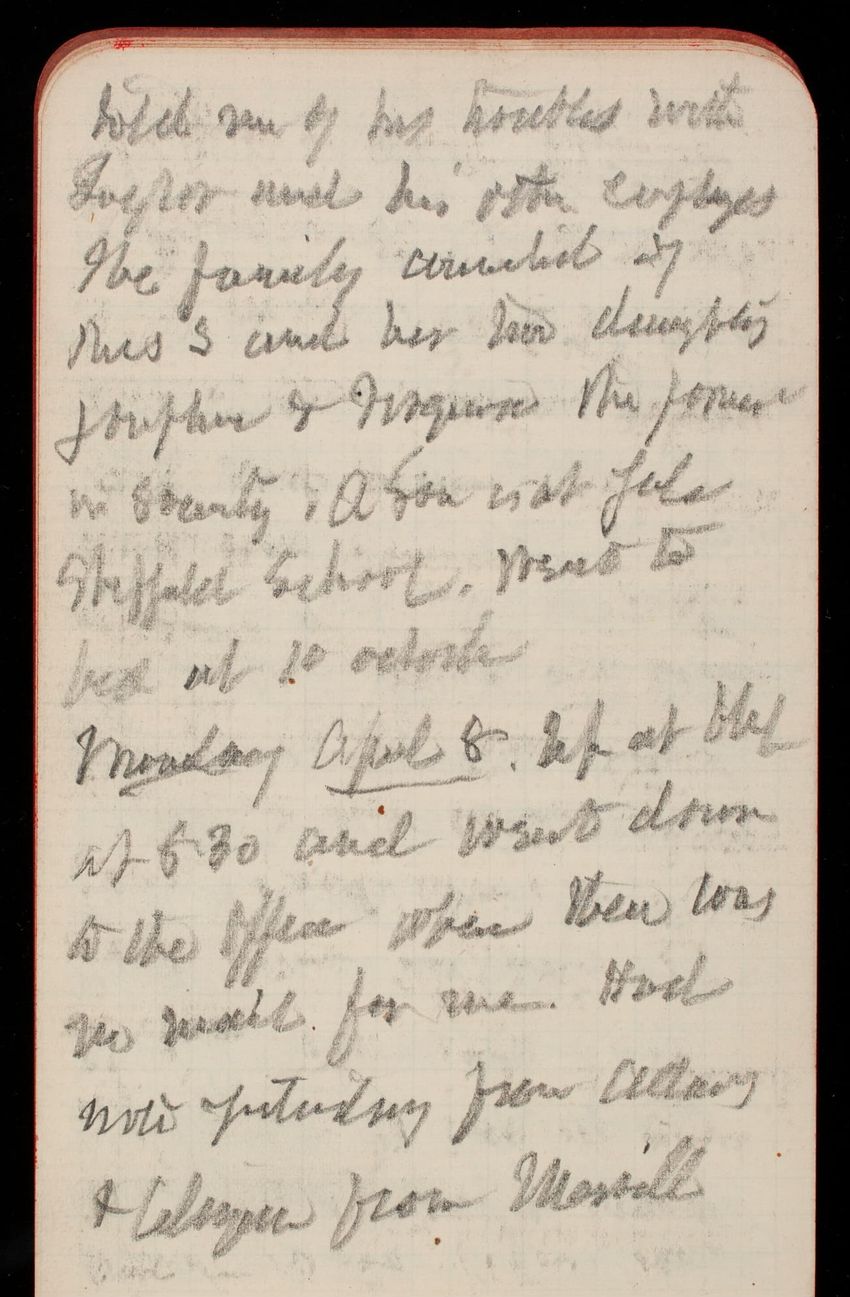 told me of his troubles with
and his other employes
The family consisted of
Mrs S and her two daughters
Josephine & the former
in Society. A Son is at Yale
Sheffield School. Went to
bed at 10 oclock
Monday April 8. Up at
at 8 30 and went down
to the Office when there was
no mail for me. Had
note yesterday from Adams
& Telegram from Merrill